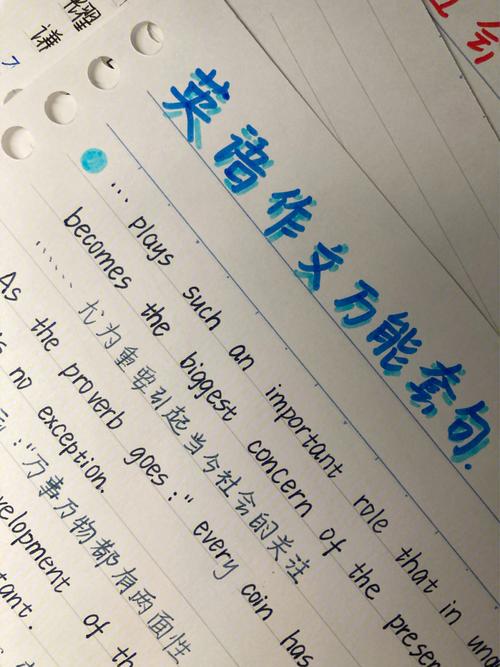 英语作文万能套句.
.... plays such an important role that in
becomes the biggest concern of the
...... 尤为重要引起当今社会的关注
As the proverb goes:" every coin has
no exception.
:"万事万物都有两面性
of
耀
谦
会